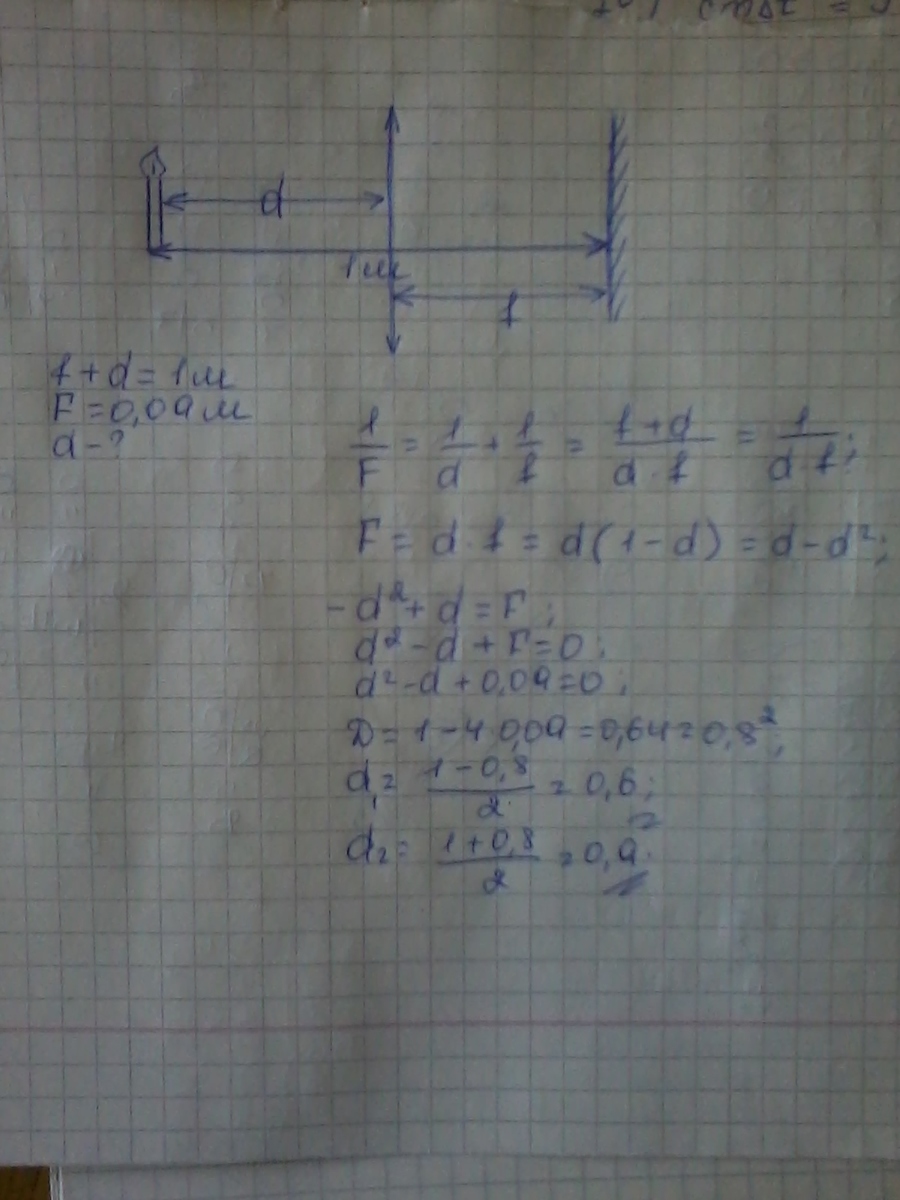 d
1м
f
f + d = 1м
F = 0,09 м
d - ?
1/F = 1/d + 1/f = (f + d)/(d · f) = 1/(d · f);
F = d · f = d(1 - d) = d - d²;
- d² + d = F;
d² - d + F = 0;
d² - d + 0,09 = 0;
D = 1 - 4·0,09 = 0,64 = 0,8²;
d₁ = (1 - 0,8)/2 = 0,6;
d₂ = (1 + 0,8)/2 = 0,9.